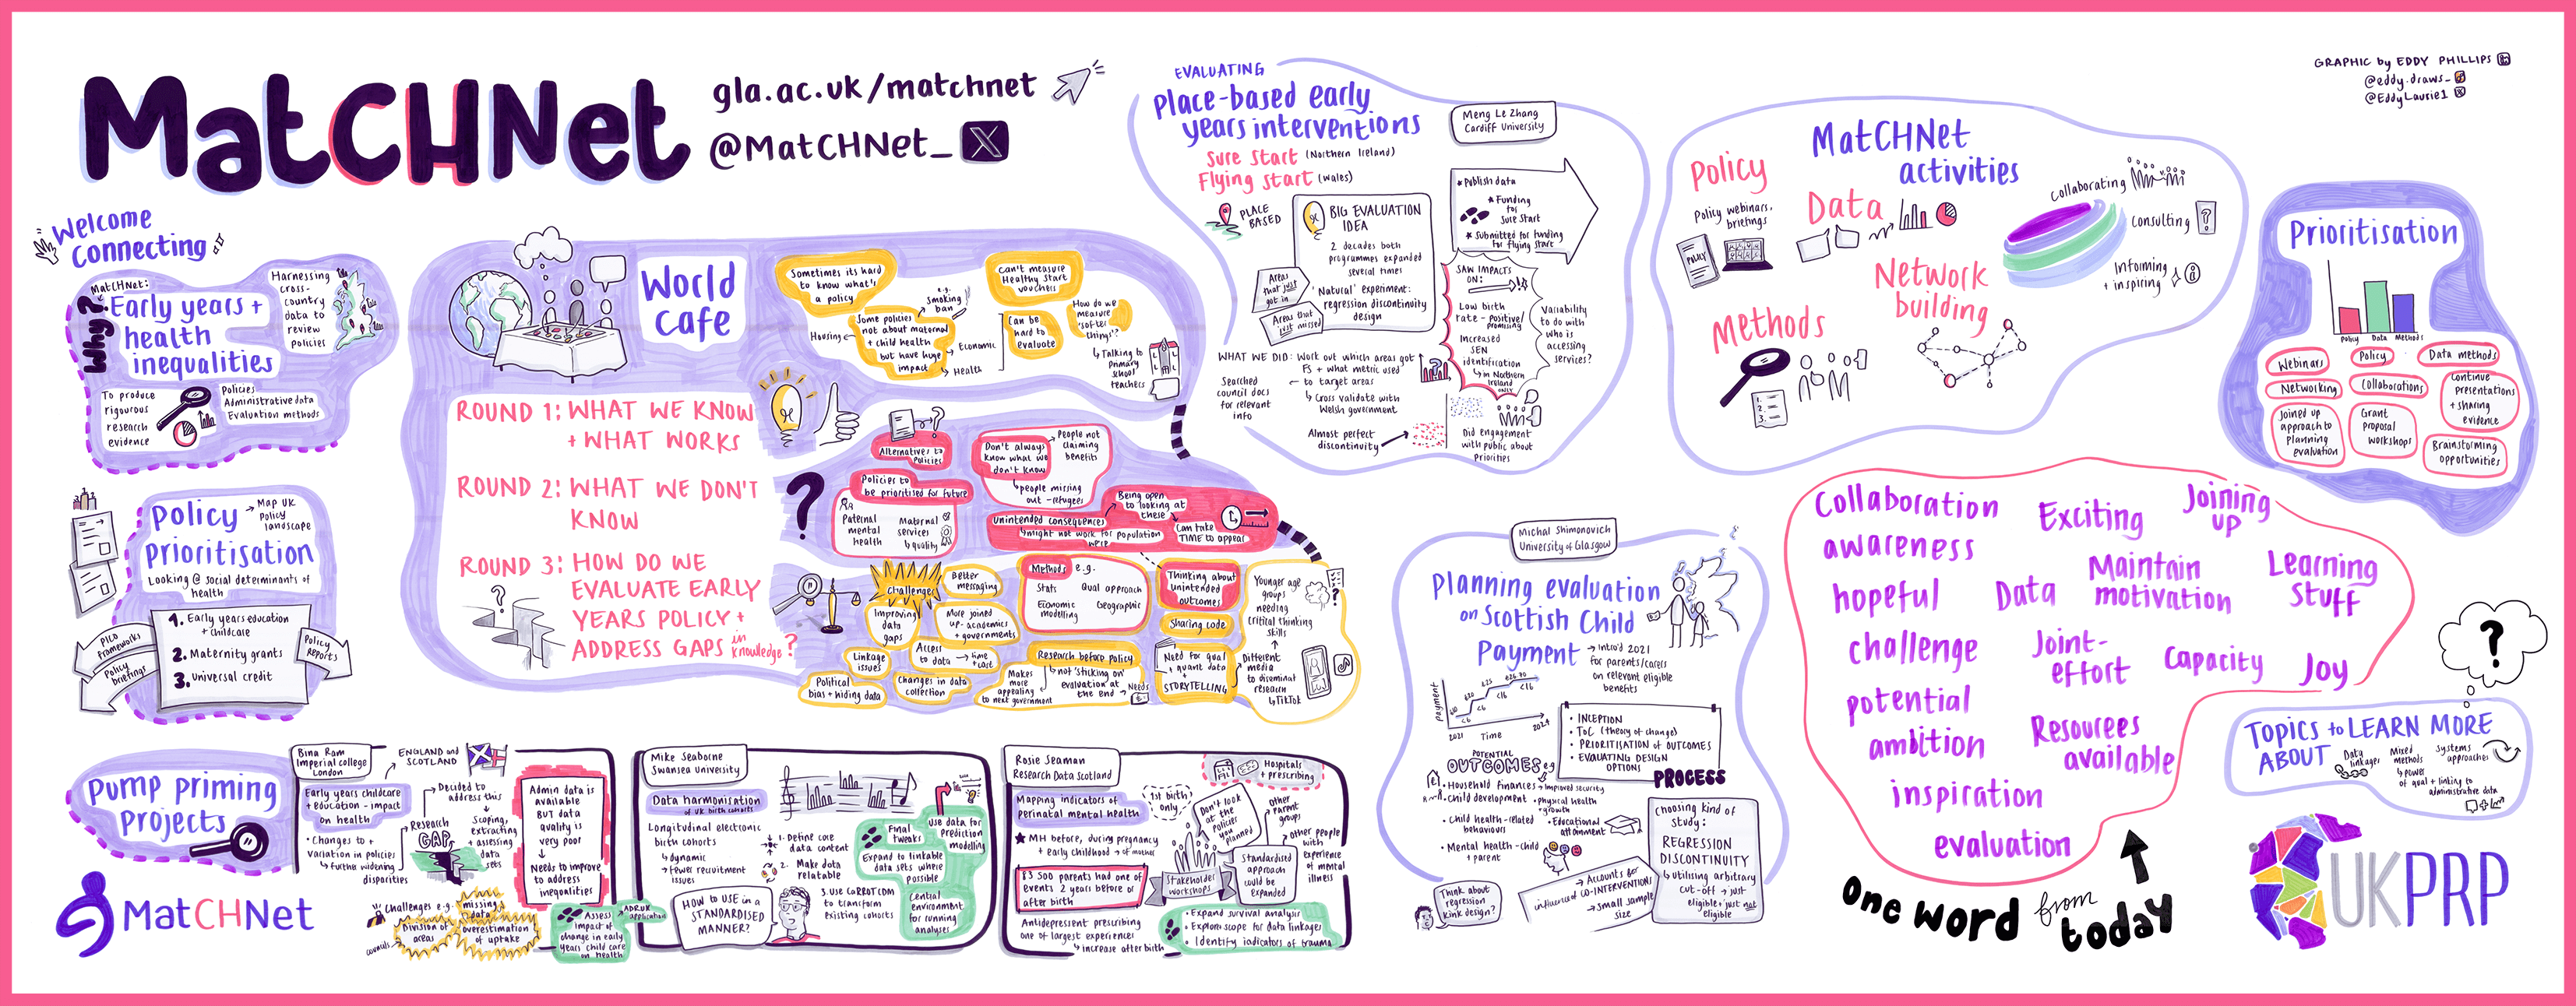 MatCHNet
gla.ac.uk/matchnet
@MatCHNet_ X
GRAPHIC by EDDY PHILLIPS
@eddy.draws_
@EddyLaurie1
Welcome
Connecting
Why?
MatCHNet:
Early years +
health
inequalities
Harnessing
cross-
country
data to
review
policies
To produce
rigorous
research
evidence
Policies
Administrative data
Evaluation methods
Policy
Prioritisation
Map UK
Policy
landscape
Looking @ social determinants of
health
1. Early years education
+ childcare
2. Maternity grants
3. Universal credit
PICO
Frameworks
Policy
briefings
Policy
Reports
World
Cafe
ROUND 1: WHAT WE KNOW
+ WHAT WORKS
ROUND 2: WHAT WE DON'T
KNOW
ROUND 3: HOW DO WE
EVALUATE EARLY
YEARS POLICY +
ADDRESS GAPS in knowledge?
Sometimes its hard
to know what's
a policy
Housing
Some policies
not about maternal
+ child health
but have huge
impact
e.g.
smoking
ban
Economic
Health
Can't measure
Healthy Start
vouchers
Can be
hard to
evaluate
How do we
measure
'softer
things'?
Talking to
primary
school
teachers
?
Alternatives to
Policies
Policies to
be prioritised for future
Paternal
mental
health
Maternal
services
quality
Don't always
know what we
don't know
People not
claiming
benefits
people missing
out - refugees
Unintended consequences
might not work for population
Being open
to looking at
these
Can take
TIME to appear
Challenges
Better
messaging
Improving
data
gaps
More joined
up - academics
+ governments
Linkage
issues
Access
to data
time
+ cost
Political
bias + hiding data
Changes in data
collection
Methods e.g.
Stats
Qual approach
Economic
modelling
Geographic
Thinking about
unintended
outcomes
Sharing code
Research before policy
not 'sticking on
evaluation' at
the end
Makes
more
appealing
to next government
Needs
Need for qual
+ quant data
STORYTELLING
Younger age
groups
needing
critical thinking
skills
Different
media
to disseminate
research
TikTok
Pump priming
Projects
Bina Ram
Imperial College
London
ENGLAND and
SCOTLAND
Early years childcare
+ education - impact
on health
Changes to +
variation in policies
further widening
disparities
Decided to
address this
Research
GAP
Scoping,
extracting
+ assessing
data
sets
Admin data is
available
BUT data
quality is
very poor
Needs to improve
to address
inequalities
Challenges e.g.
councils
Division of
areas
missing
data
overestimation
of uptake
Assess
impact of
change in early
years child care
on health
ADRUK
application
Mike Seaborne
Swansea University
Data harmonisation
of UK birth cohorts
Longitudinal electronic
birth cohorts
dynamic
fewer recruitment
issues
1. Define core
data content
2. Make data
relatable
3. Use CaRROT CDM
to transform
existing cohorts
HOW to USE in a
STANDARDISED
MANNER?
Final
tweaks
Use data for
prediction
modelling
Expand to linkable
data sets where
possible
Central
environment
for running
analyses
Rosie Seaman
Research Data Scotland
Mapping indicators of
perinatal mental health
1st birth
only
Hospitals
+ prescribing
MH before, during pregnancy
+ early childhood of mother
83 500 parents had one of
events 2 years before or
after birth
Antidepressant prescribing
one of largest experiences
increase after birth
Don't look
at the
policies
you
planned
Stakeholder
workshops
Other
parent
groups
Standardised
approach
could be
expanded
other people
with
experience
of mental
illness
Expand survival analysis
Explore scope for data linkages
Identify indicators of trauma
EVALUATING
Place-based early
years interventions
Meng Le Zhang
Cardiff University
Sure Start (Northern Ireland)
Flying Start (Wales)
PLACE
BASED
BIG EVALUATION
IDEA
2 decades both
programmes expanded
several times
'Natural' experiment:
regression discontinuity
design
Areas
that just
got in
Areas that
just missed
Publish data
Funding
for
Sure Start
Submitted for funding
for flying start
SAW IMPACTS
ON:
Low birth
rate - positive/
promising
Increased
SEN
identification
in Northern
Ireland
ONLY
Variability
to do with
who is
accessing
services?
WHAT WE DID: Work out which areas got
FS + what metric used
to target areas
Cross validate with
Welsh government
Searched
council docs
for relevant
info
Almost perfect
discontinuity
Did engagement
with public about
Priorities
MatCHNet
activities
Policy
Policy webinars,
briefings
POLICY
Data
Methods
1.
2.
3.
Network
building
Collaborating
Consulting
?
Informing
+ inspiring
i
Prioritisation
Policy Data Methods
Webinars
Policy
Data methods
Networking
Collaborations
Continue
presentations
+ sharing
evidence
Joined up
approach to
planning
evaluation
Grant
proposal
workshops
Brainstorming
opportunities
Michal Shimonovich
University of Glasgow
Planning evaluation
on Scottish Child
Payment
Intro'd 2021
for parents/carers
on relevant eligible
benefits
Payment
Time
2021
2024
INCEPTION
ToC (theory of change)
PRIORITISATION of OUTCOMES
EVALUATING DESIGN
OPTIONS
PROCESS
POTENTIAL
OUTCOMES e.g
Household finances
improved security
Child development
physical health
+ growth
Child health-related
behaviours
Educational
attainment
Mental health - child
+ parent
influences of
Accounts for
CO-INTERVENTIONS
small sample
size
Think about
regression
kink design?
Choosing kind of
study:
REGRESSION
DISCONTINUITY
utilising arbitrary
cut-off + just
eligible + just not
eligible
Collaboration
Exciting
Joining
up
awareness
hopeful
Data
Maintain
motivation
Learning
Stuff
challenge
Joint-
effort
Capacity
Joy
potential
ambition
Resources
available
inspiration
evaluation
One word from
today
?
TOPICS to LEARN MORE
ABOUT
Data
linkages
Mixed
methods
power
of qual + linking to
administrative data
Systems
approaches
MatCHNet
UKPRP